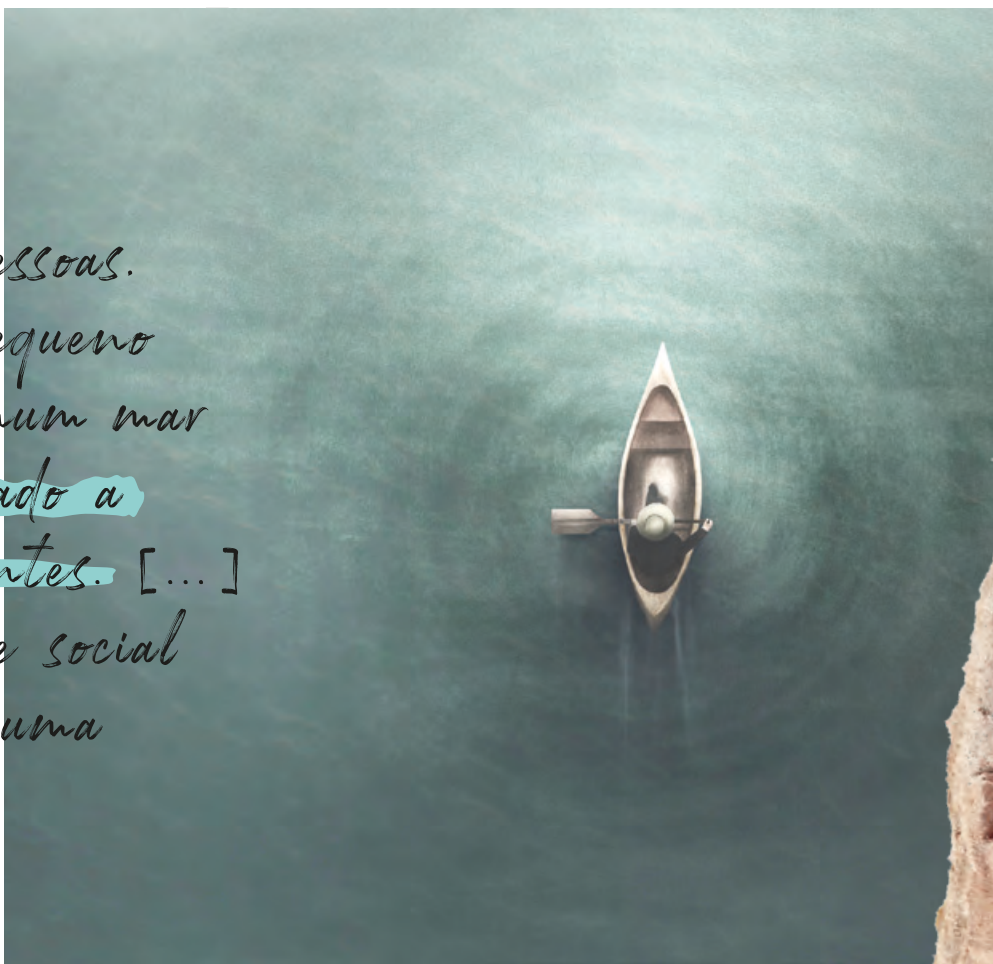 essoas.
equeno
num mar
ado a
ntes. [...]
e social
uma